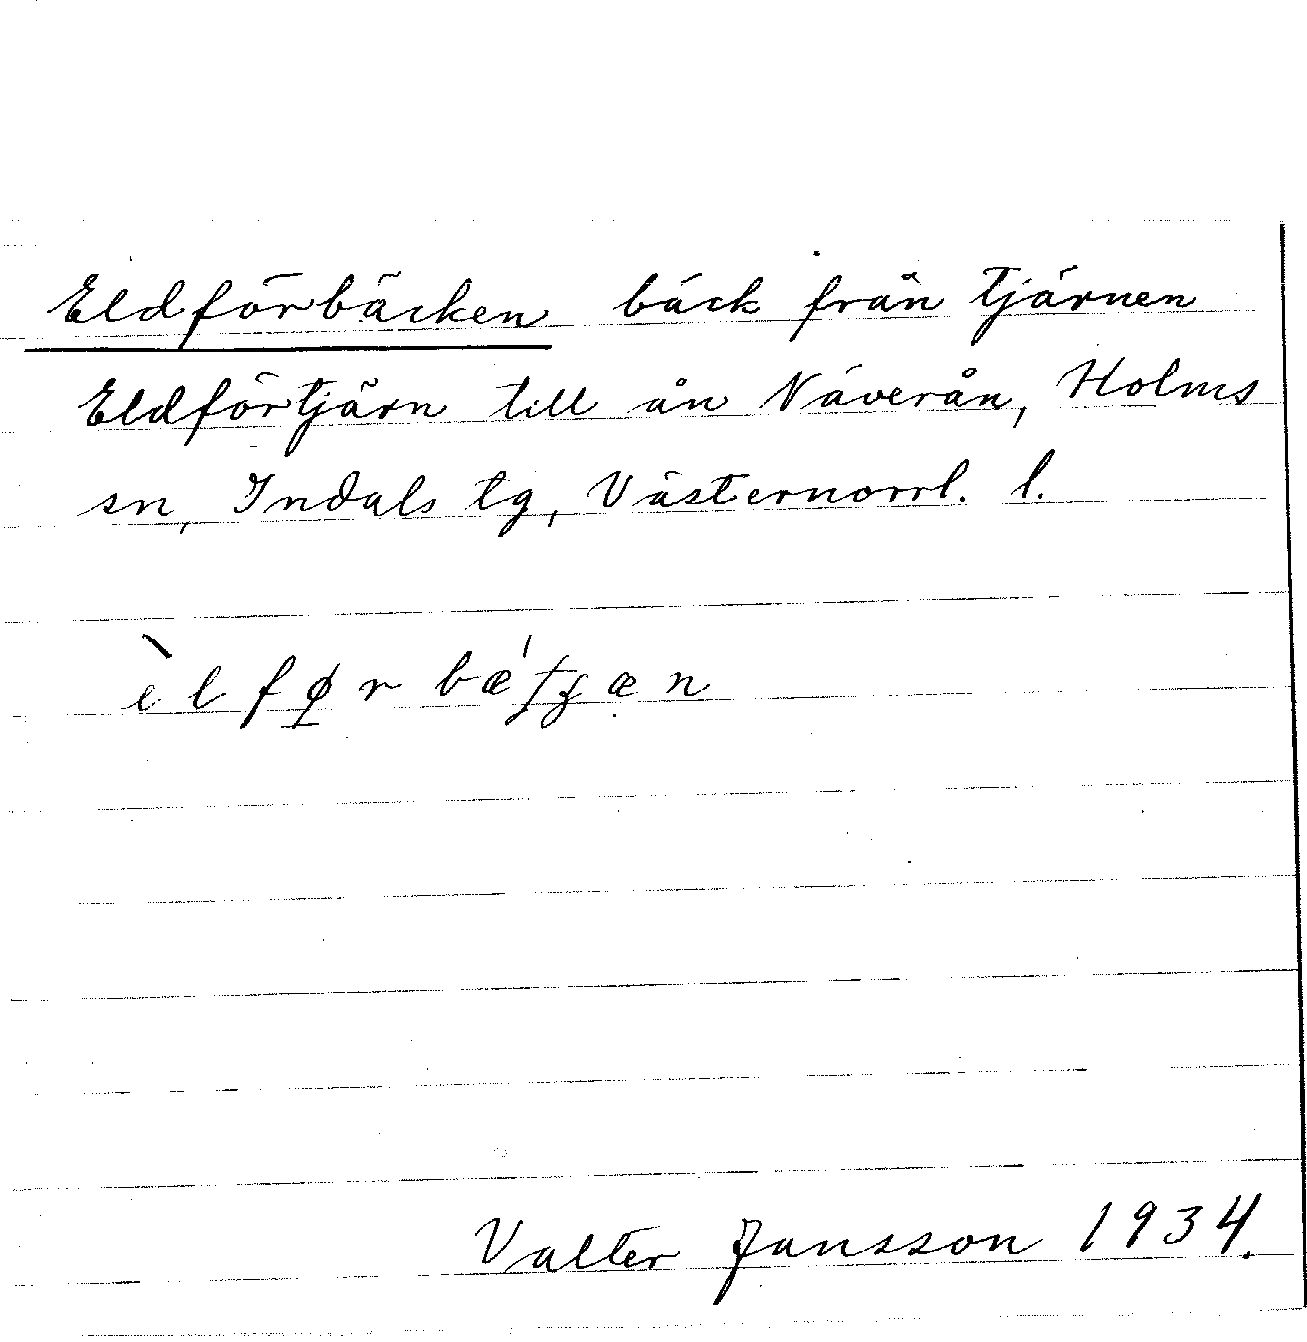 Eldförbäcken bäck från tjärnen
Eldförtjärn till ån Näverån, Holms
sn, Indals tg, Västernorrl. l.
Valter Jansson 1934.